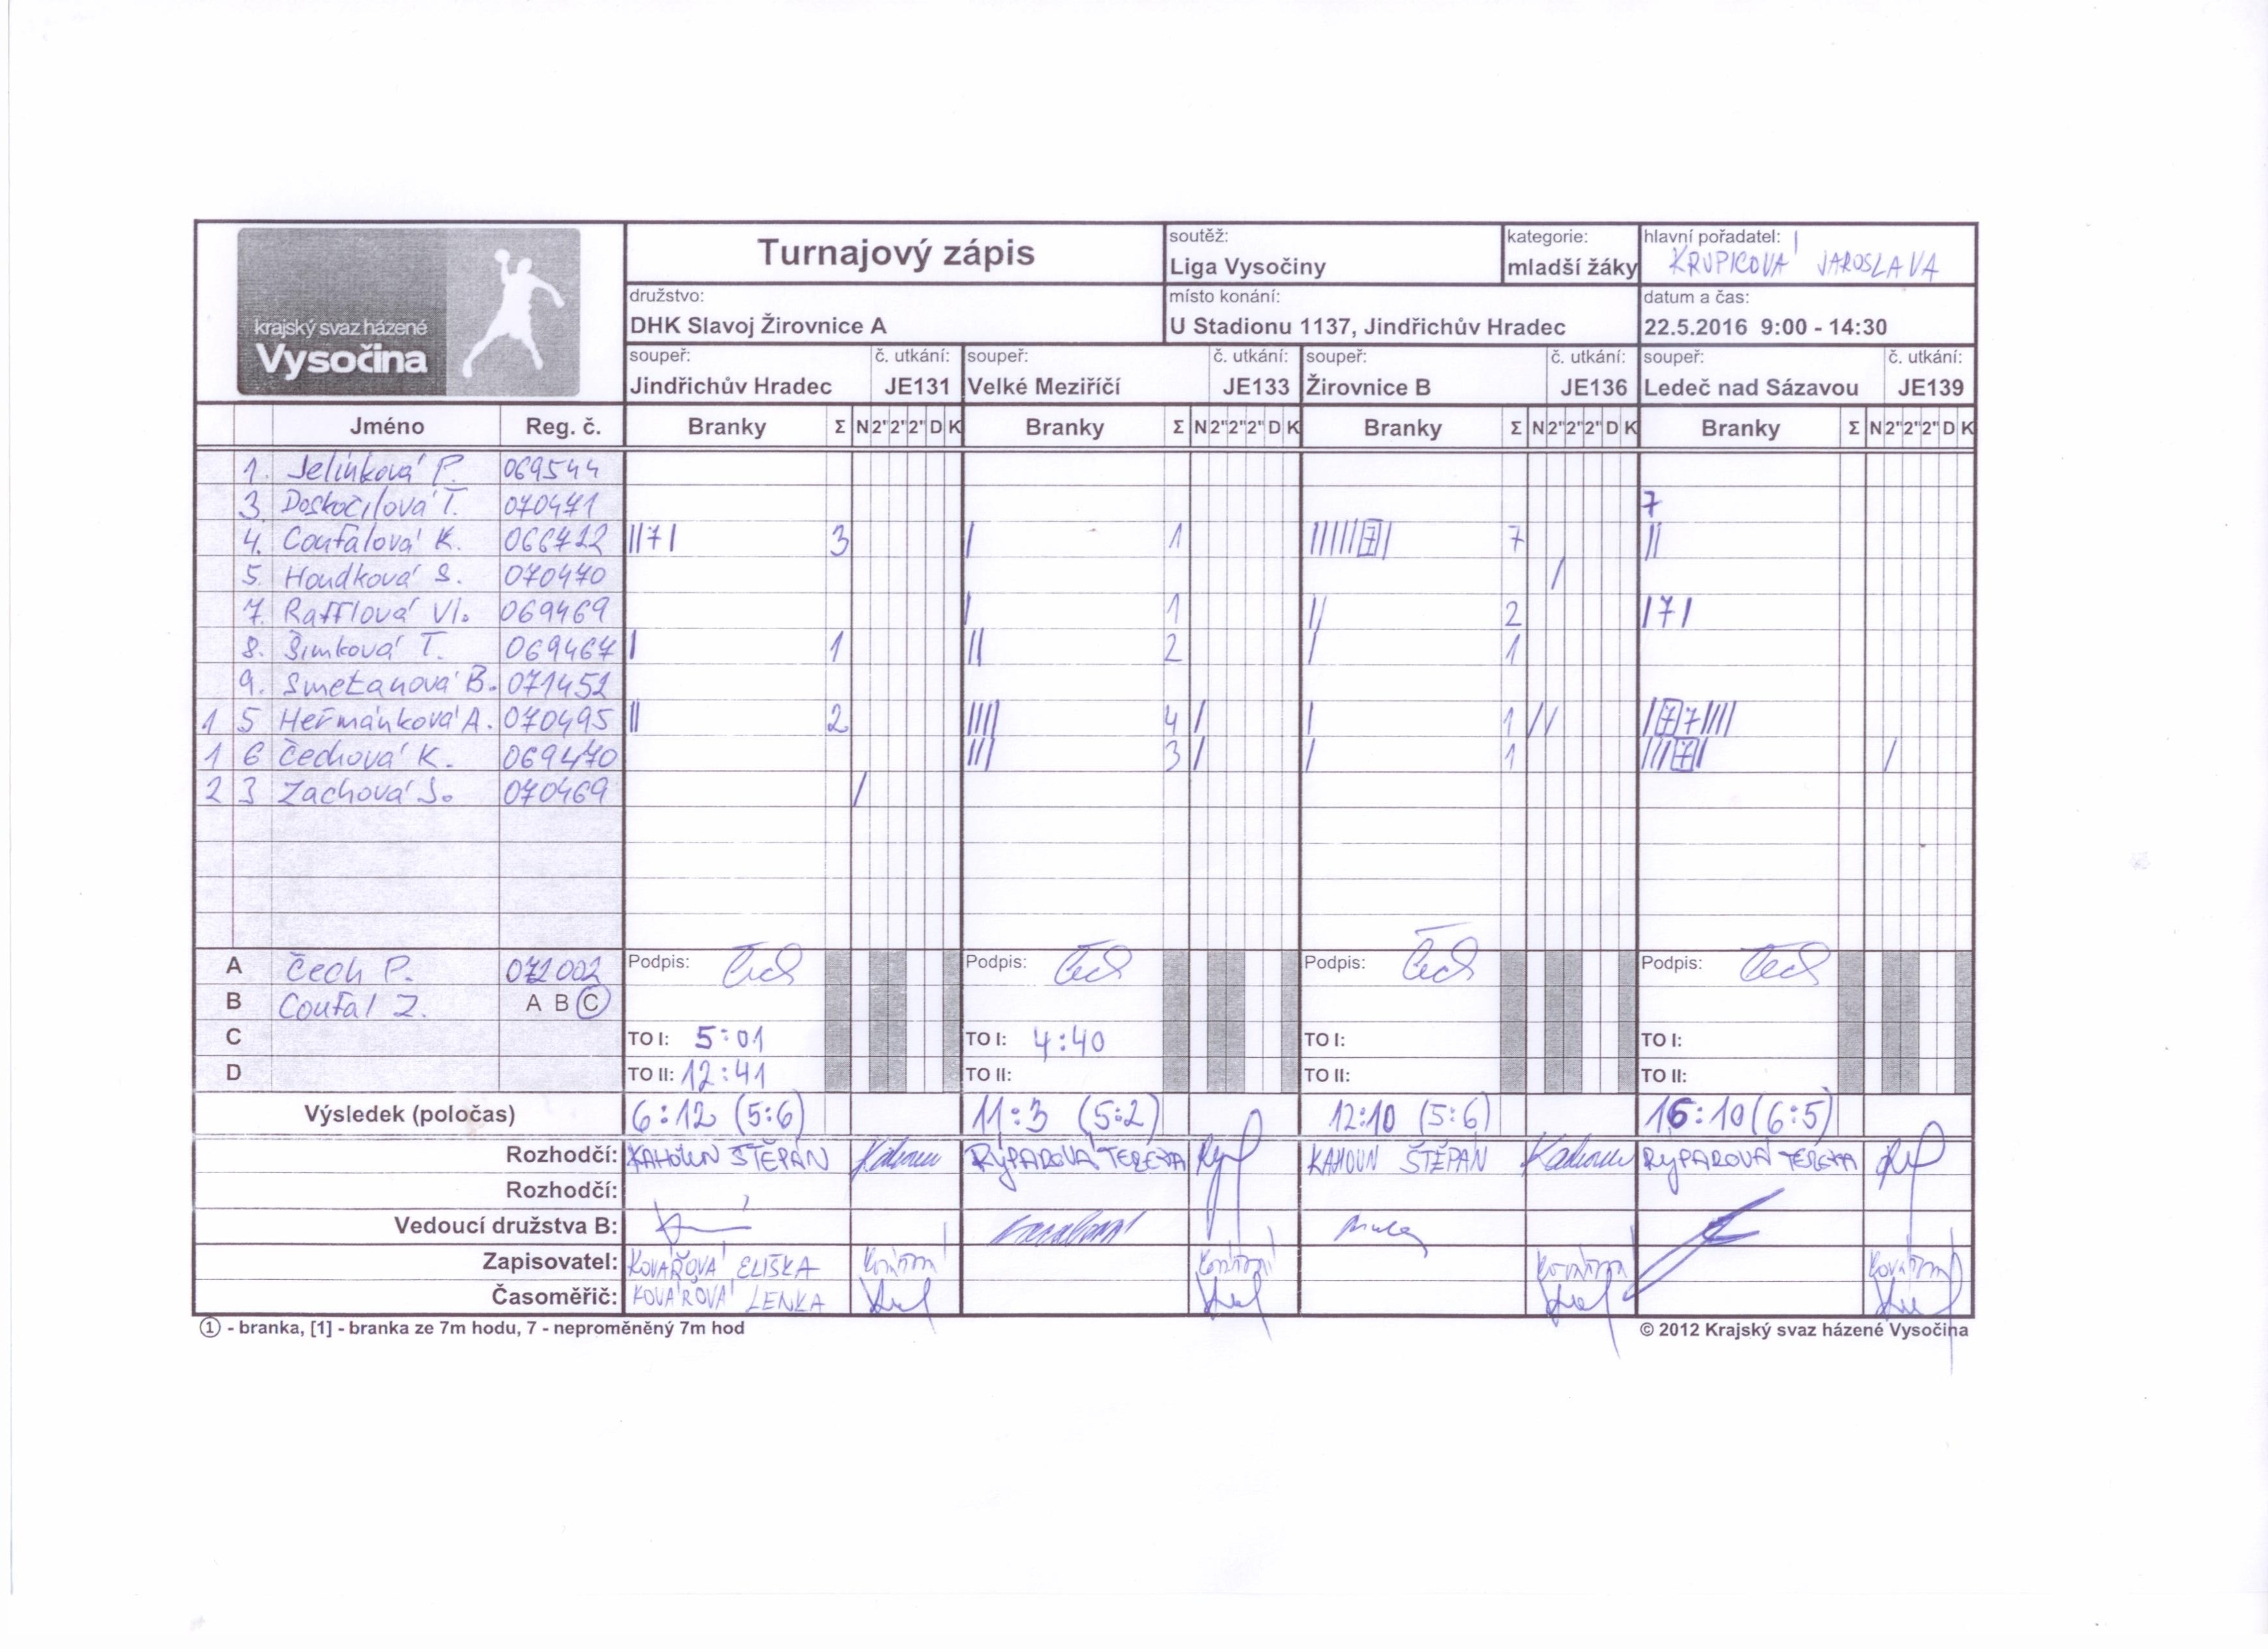 krajský svaz házené
Vysočina
Turnajový zápis
soutěž:
Liga Vysočiny
kategorie:
mladší žáky
hlavní pořadatel:
KRUPICOVÁ JAROSLAVA
družstvo:
DHK Slavoj Žirovnice A
místo konání:
U Stadionu 1137, Jindřichův Hradec
datum a čas:
22.5.2016 9:00 - 14:30
soupeř: č. utkání: soupeř: č. utkání: soupeř: č. utkání: soupeř: č. utkání:
Jindřichův Hradec JE131 Velké Meziříčí JE133 Žirovnice B JE136 Ledeč nad Sázavou JE139
Jméno Reg. č. Branky Σ N 2" 2" 2" D K Branky Σ N 2" 2" 2" D K Branky Σ N 2" 2" 2" D K Branky Σ N 2" 2" 2" D K
1. Jelínková P. 069544
3. Doskočilová T. 070471 7
4. Coufalová K. 066722 ||7| 3 | 1 ||||||[7]| 7 ||
5. Houdková S. 070470 /
7. Rafflová Vl. 069469 | 1 || 2 |7|
8. Šimková T. 069467 | 1 || 2 | 1
9. Smetanová B. 071452
15 Heřmánková A. 070495 || 2 |||| 4 / | 1 // |[7]7||||
16 Čechová K. 069470 ||| 3 / | 1 |||[7]| /
23 Zachová S. 070469 /
A Čech P. 072002 Podpis: Čech Podpis: Čech Podpis: Čech Podpis: Čech
B Coufal Z. A B C
C TO I: 5:01 TO I: 4:40 TO I: TO I:
D TO II: 12:41 TO II: TO II: TO II:
Výsledek (poločas) 6:12 (5:6) 11:3 (5:2) 12:10 (5:6) 16:10 (6:5)
Rozhodčí: KAHOUN ŠTĚPÁN RYPAROVÁ TEREZA KAHOUN ŠTĚPÁN RYPAROVÁ TEREZA
Rozhodčí:
Vedoucí družstva B:
Zapisovatel: KOVÁŘOVÁ ELIŠKA
Časoměřič: KOVÁŘOVÁ LENKA
① - branka, [1] - branka ze 7m hodu, 7 - neproměněný 7m hod
© 2012 Krajský svaz házené Vysočina